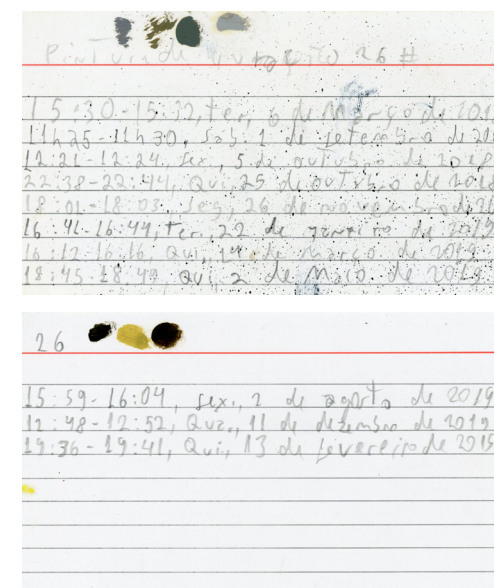 Pintura de 26 #
15:30-15:32, ter, 6 de Março de 201
11h25-11h30, Sab. 1 de setembro de 201
12:21-12:24, sex., 5 de outubro de 2018
22:38-22:44, Qui, 25 de outubro de 2018
18:01-18:03, seg, 26 de novembro de 20
16:41-16:44, ter., 22 de janeiro de 2019
16:12-16:16, Qui, 14 de março de 2019
18:45-18:49, Qui, 2 de Maio de 2019
26
15:59-16:04, sex., 2 de agosto de 2019
12:48-12:52, Qua., 11 de dezembro de 2019
19:36-19:41, Qui, 13 de fevereiro de 201